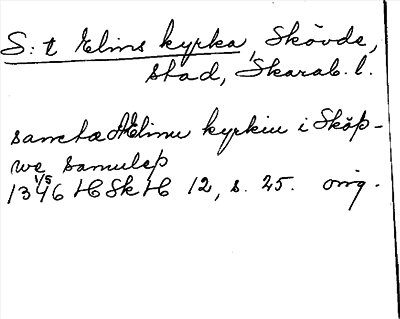 S:t Elins kyrka, Skövde,
stad, Skarab. l.
sancta Elinu kyrkiu i Sköp-
we samulep
1346 1/5 HSH 12, s. 25. orig.